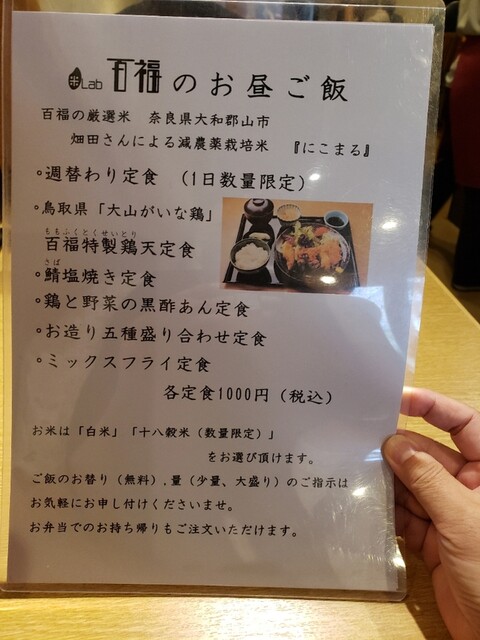 米Lab 百福のお昼ご飯
百福の厳選米 奈良県大和郡山市
畑田さんによる減農薬栽培米 『にこまる』
◦週替わり定食 (1日数量限定)
◦鳥取県「大山がいな鶏」
ももふくとくせいとり
百福特製鶏天定食
さば
◦鯖塩焼き定食
◦鶏と野菜の黒酢あん定食
◦お造り五種盛り合わせ定食
◦ミックスフライ定食
各定食1000円 (税込)
お米は「白米」「十八穀米(数量限定)」
をお選び頂けます。
ご飯のお替り(無料),量(少量、大盛り)のご指示は
お気軽にお申し付けくださいませ。
お弁当でのお持ち帰りもご注文いただけます。